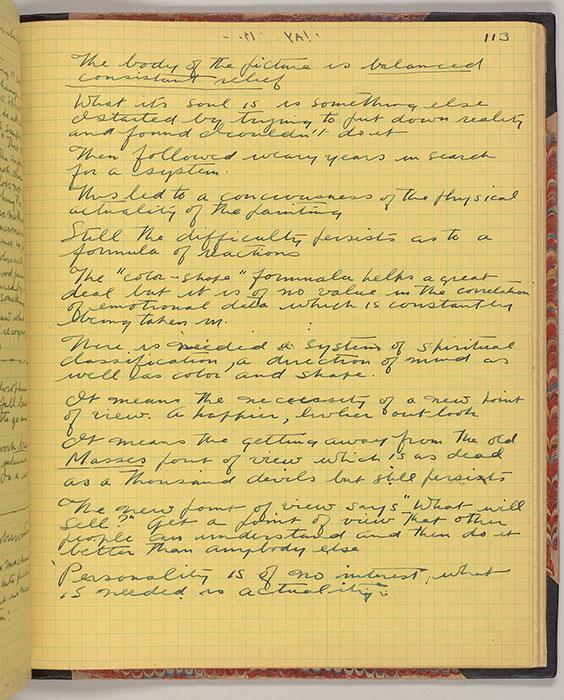 113
The body of the picture is balanced
consistant relief
What its soul is is something else
I started by trying to put down reality
and found I couldn't do it
Then followed weary years in search
for a system.
This led to a conciousness of the physical
actuality of the painting
Still the difficulty persists as to a
formula of reactions
The "color-shape" formula helps a great
deal but it is of no value in the correlation
of emotional data which is constantly
being taken in.
There is needed a system of spiritual
classification, a direction of mind as
well as color and shape.
It means the necessity of a new point
of view. A happier, livlier outlook
It means the getting away from the old
Masses point of view which is as dead
as a thousand devils but still persists
The new point of view says "What will
sell?" get a point of view that other
people can understand and then do it
better than anybody else
Personality is of no interest, what
is needed is actuality.